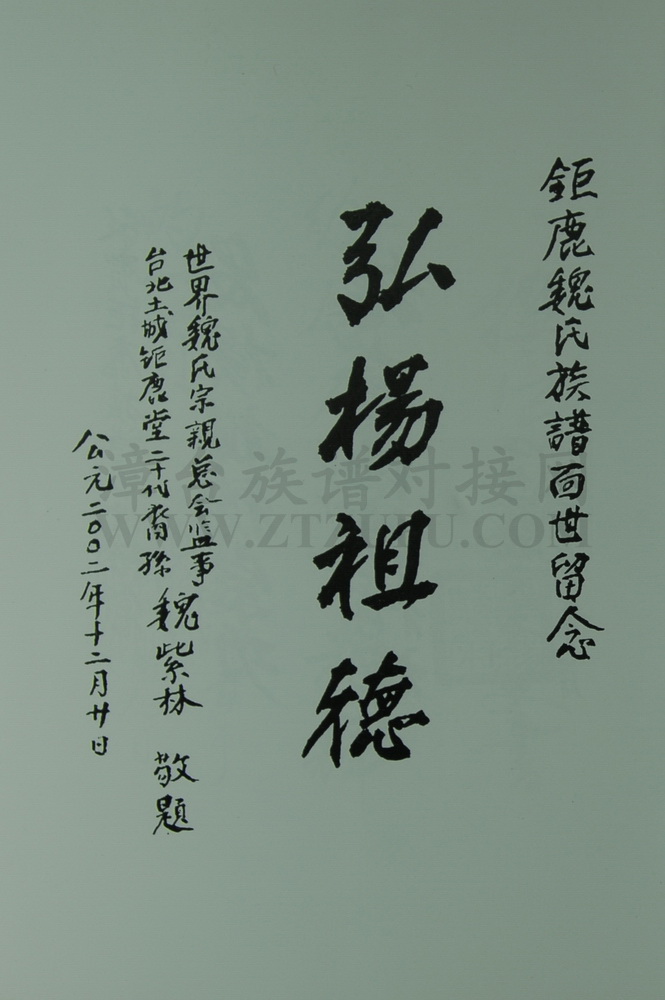 鉅鹿魏氏族譜面世留念
弘楊祖德
世界魏氏宗親总会监事
台北土城鉅鹿堂二十代裔孫
魏紫林 敬題
公元二00二年十二月廿日
漳台族谱对接网
WWW.ZTZUPU.COM